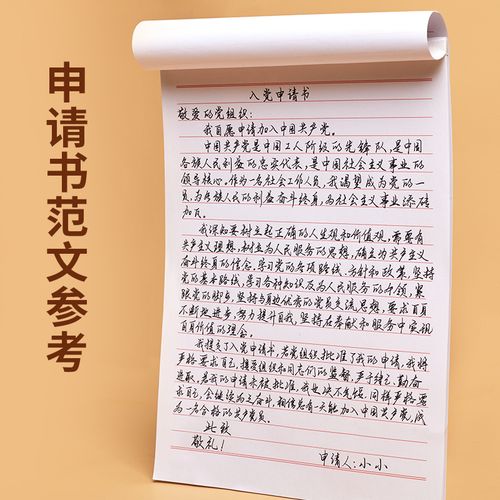 申请书范文参考
入党申请书
敬爱的党组织：
我自愿申请加入中国共产党。
中国共产党是中国工人阶级的先锋队，是中国
各族人民利益的忠实代表，是中国社会主义事业的
领导核心。作为一名社会工作人员，我渴望成为党的一
员，为各族人民的利益奋斗终身，为社会主义事业添砖
加瓦。
我深知要树立起正确的人生观和价值观，需要有
共产主义理想，树立为人民服务的思想，确立为共产主义
奋斗终身的信念，学习党的各项路线、方针和政策，坚持
党的基本路线，学习各种知识及为人民服务的本领，紧
跟党的脚步，坚持与身边优秀的党员交流思想，要求自身
不断地进步，努力提升自我，坚持在奉献和服务中实现
自身价值的理念。
我提交了入党申请书，若党组织批准了我的申请，我将
严格要求自己，接受组织和同志们的监督，严于律己，勤奋
进取，若我的申请未被批准，我也决不气馁，同样严格要
求自己，会继续为之奋斗，相信总有一天能加入中国共产党，成
为一名合格的共产党员。
此致
敬礼！
申请人：小小